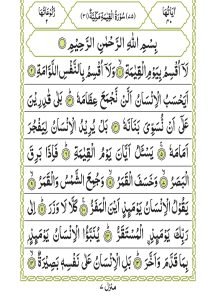 اٰیَاتُهَا ۴۰ (۷۵) سُوْرَةُ الْقِیٰمَةِ مَكِّیَّةٌ (۳۱) رُكُوْعَاتُهَا ۲
بِسْمِ اللّٰهِ الرَّحْمٰنِ الرَّحِیْمِ
لَاۤ اُقْسِمُ بِیَوْمِ الْقِیٰمَةِ ۱ وَلَاۤ اُقْسِمُ بِالنَّفْسِ اللَّوَّامَةِ ۲
اَیَحْسَبُ الْاِنْسَانُ اَلَّنْ نَّجْمَعَ عِظَامَهٗ ۳ بَلٰی قٰدِرِیْنَ
عَلٰۤی اَنْ نُّسَوِّیَ بَنَانَهٗ ۴ بَلْ یُرِیْدُ الْاِنْسَانُ لِیَفْجُرَ
اَمَامَهٗ ۵ یَسْـَٔلُ اَیَّانَ یَوْمُ الْقِیٰمَةِ ۶ فَاِذَا بَرِقَ
الْبَصَرُ ۷ وَخَسَفَ الْقَمَرُ ۸ وَجُمِعَ الشَّمْسُ وَالْقَمَرُ ۹
یَقُوْلُ الْاِنْسَانُ یَوْمَىِٕذٍ اَیْنَ الْمَفَرُّ ۱۰ كَلَّا لَا وَزَرَ ۱۱ اِلٰی
رَبِّكَ یَوْمَىِٕذِ الْمُسْتَقَرُّ ۱۲ یُنَبَّؤُا الْاِنْسَانُ یَوْمَىِٕذٍۭ
بِمَا قَدَّمَ وَاَخَّرَ ۱۳ بَلِ الْاِنْسَانُ عَلٰی نَفْسِهٖ بَصِیْرَةٌ ۱۴
منزل ۷